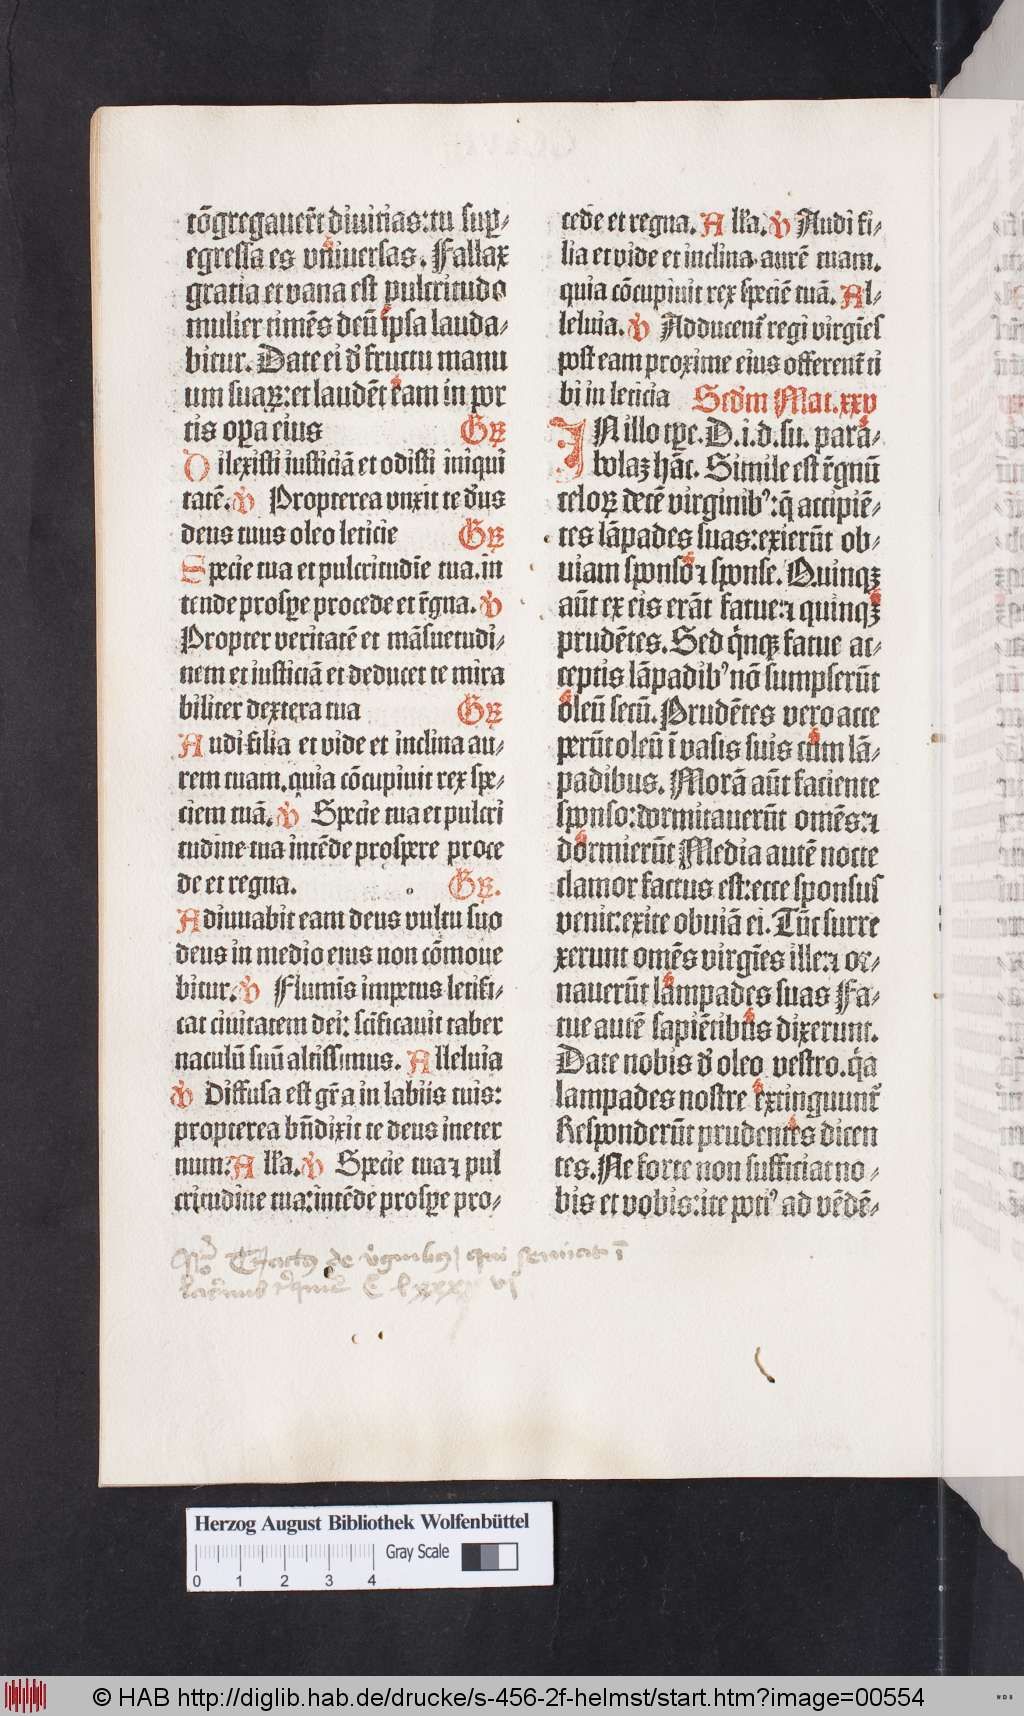 cōgregauer̄t diuicias:tu suꝑ⸗
egressa es vniuersas. Fallax
gratia et vana est pulcritudo
mulier timēs deū ipsa lauda⸗
bitur. Date ei đ fructu manu
um suaꝝ:et laudēt eam in por
tis oꝑa eius Gꝝ
Dilexisti iusticiā et odisti iniqui
tatē. ℣ Propterea vnxit te dꝰus
deus tuus oleo leticie Gꝝ
Specie tua et pulcritudīe tua.in
tende prosꝑe procede et r̄gna. ℣
Propter veritatē et māsuetudi⸗
nem et iusticiā et deducet te mira
biliter dextera tua Gꝝ
Audi filia et vide et inclina au⸗
rem tuam.quia cōcupiuit rex spe⸗
ciem tuā. ℣ Specie tua et pulcri
tudine tua intēde prospere proce
de et regna. Gꝝ.
Adiuuabit eam deus vultu suo
deus in medio eius non cōmoue
bitur. ℣ Flumīs impetus letifi⸗
cat ciuitatem dei: scīficauit taber
naculū suū altissimus. Alleluia
℣ Diffusa est gr̄a in labiis tuis:
propterea bn̄dixit te deus in eter
num: A lła. ℣ Specie tua ⁊ pul
critudine tua:intēde prosꝑe pro⸗
cede et regna. A lła. ℣ Audi fi⸗
lia et vide et inclina aurē tuam.
quia cōcupiuit rex speciē tuā. Al⸗
leluia. ℣ Adducent᷑ regi virgīes
post eam proxime eius offerent᷑ ti
bi in leticia Scđm Mat.xxv
IN illo tꝑe. D.i.d.su. parā⸗
bolaꝫ hāc. Simile est r̄gnū
celoꝝ decē virginibꝰ:q̄ accipiē⸗
tes lāpades suas:exierūt ob⸗
uiam sponso ⁊ sponse. Quinqꝫ
aūt ex eis erāt fatue:⁊ quinqꝫ
prudētes. Sed qͥnqꝫ fatue ac⸗
ceptis lāpadibꝰ nō sumpserūt
oleū secū. Prudētes vero acce
perūt oleū ī vasis suis cum lā⸗
padibus. Morā aūt faciente
sponso:dormitauerūt omēs:⁊
dormierūt Media autē nocte
clamor factus est:ecce sponsus
venit:exite obuiā ei. Tūc surre
xerunt omēs virgīes ille:⁊ or⸗
nauerūt lampades suas Fa⸗
tue autē sapiētibus dixerunt.
Date nobis đ oleo vestro.qͣa
lampades nostre extinguunt᷑
Responderūt prudentes dicen
tes. Ne forte non sufficiat no⸗
bis et vobis:ite potiꝰ ad vēdē⸗
de qui seminat ī
Herzog August Bibliothek Wolfenbüttel
Gray Scale
0 1 2 3 4
© HAB http://diglib.hab.de/drucke/s-456-2f-helmst/start.htm?image=00554